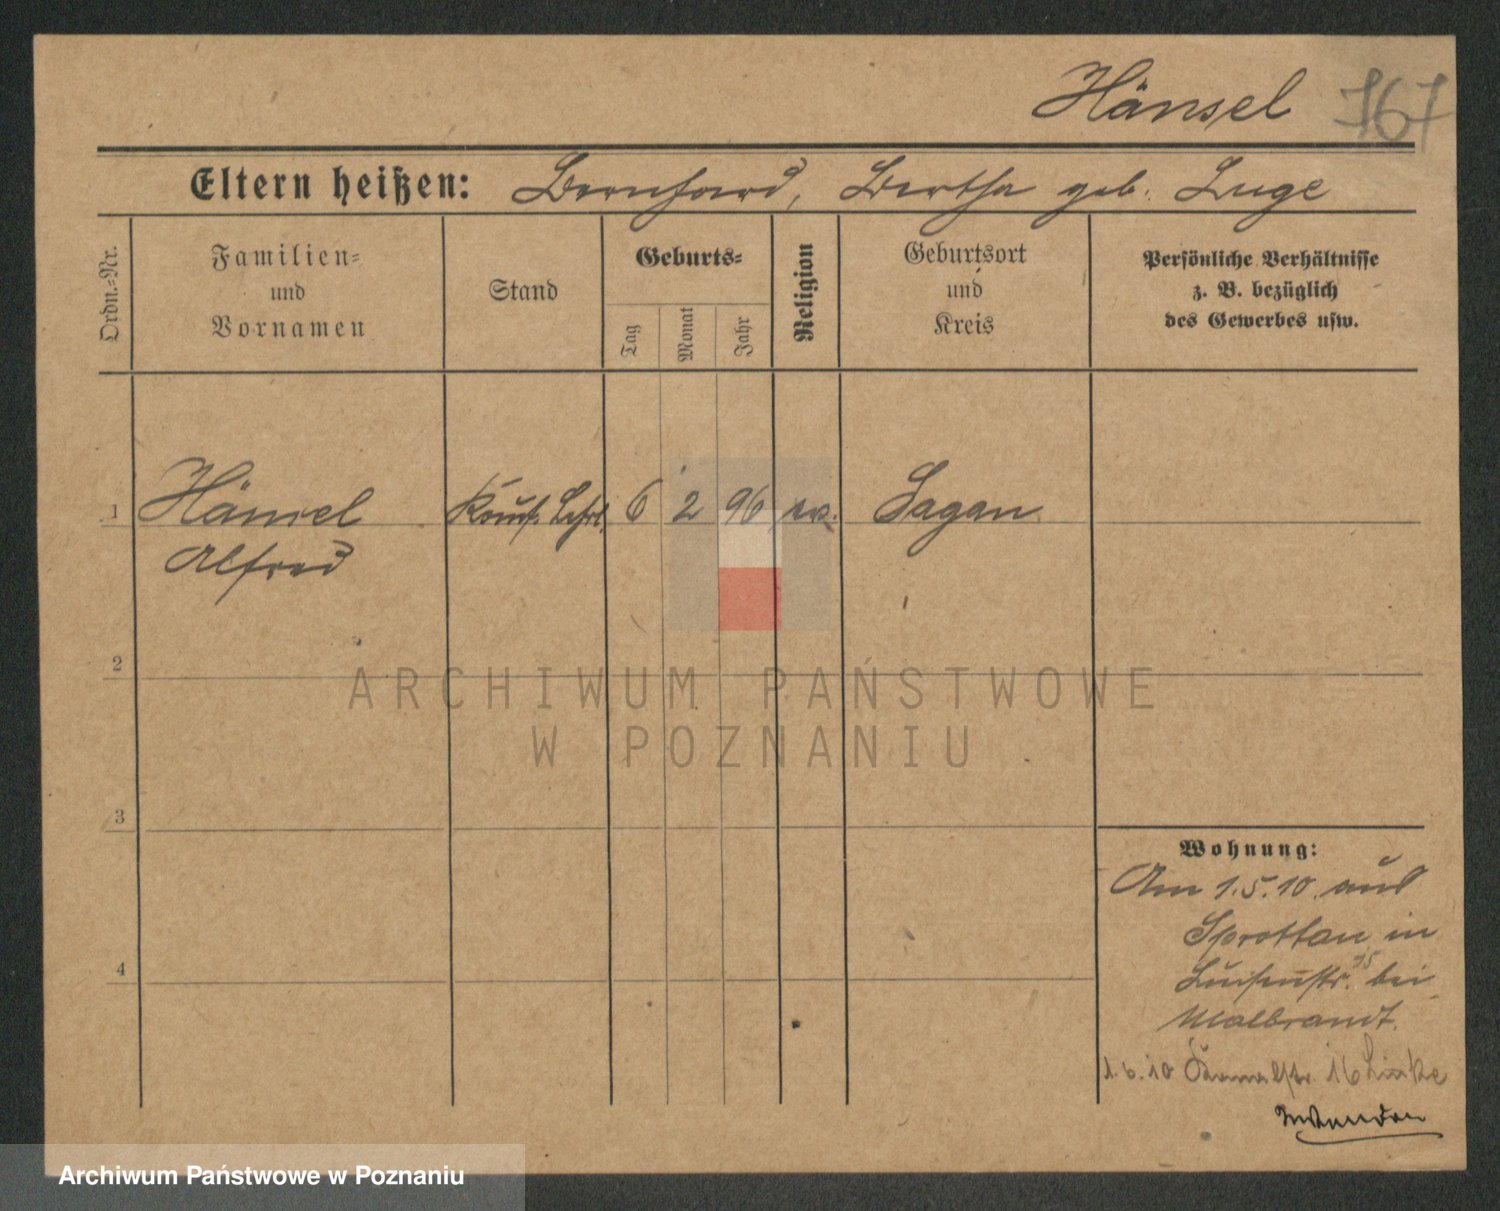 Hänsel 767
Eltern heißen: Bernhard, Bertha geb. Luge
Ordn.-Nr.
Familien-
und
Vornamen
Stand
Geburts-
Tag
Monat
Jahr
Religion
Geburtsort
und
Kreis
Persönliche Verhältnisse
z. B. bezüglich
des Gewerbes usw.
1 Hänsel Kaufm. Lehrl. 6 2 96 ev. Sagan
Alfred
2
ARCHIWUM PAŃSTWOWE
W POZNANIU
3
Wohnung:
Am 1.5.10 aus
Sprottau in
4
Luisenstr. 15 bei
Malbrandt.
1.6.10 16 Linke
Archiwum Państwowe w Poznaniu